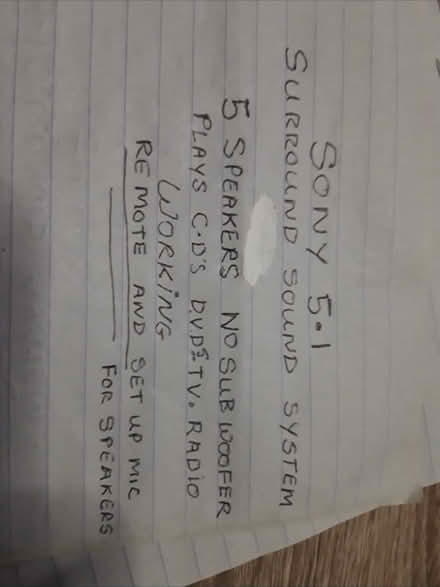 SONY 5.1
SURROUND SOUND SYSTEM
5 SPEAKERS NO SUB WOOFER
PLAYS C.D'S D.V.D'S TV. RADIO
WORKING
REMOTE AND SET UP MIC
FOR SPEAKERS